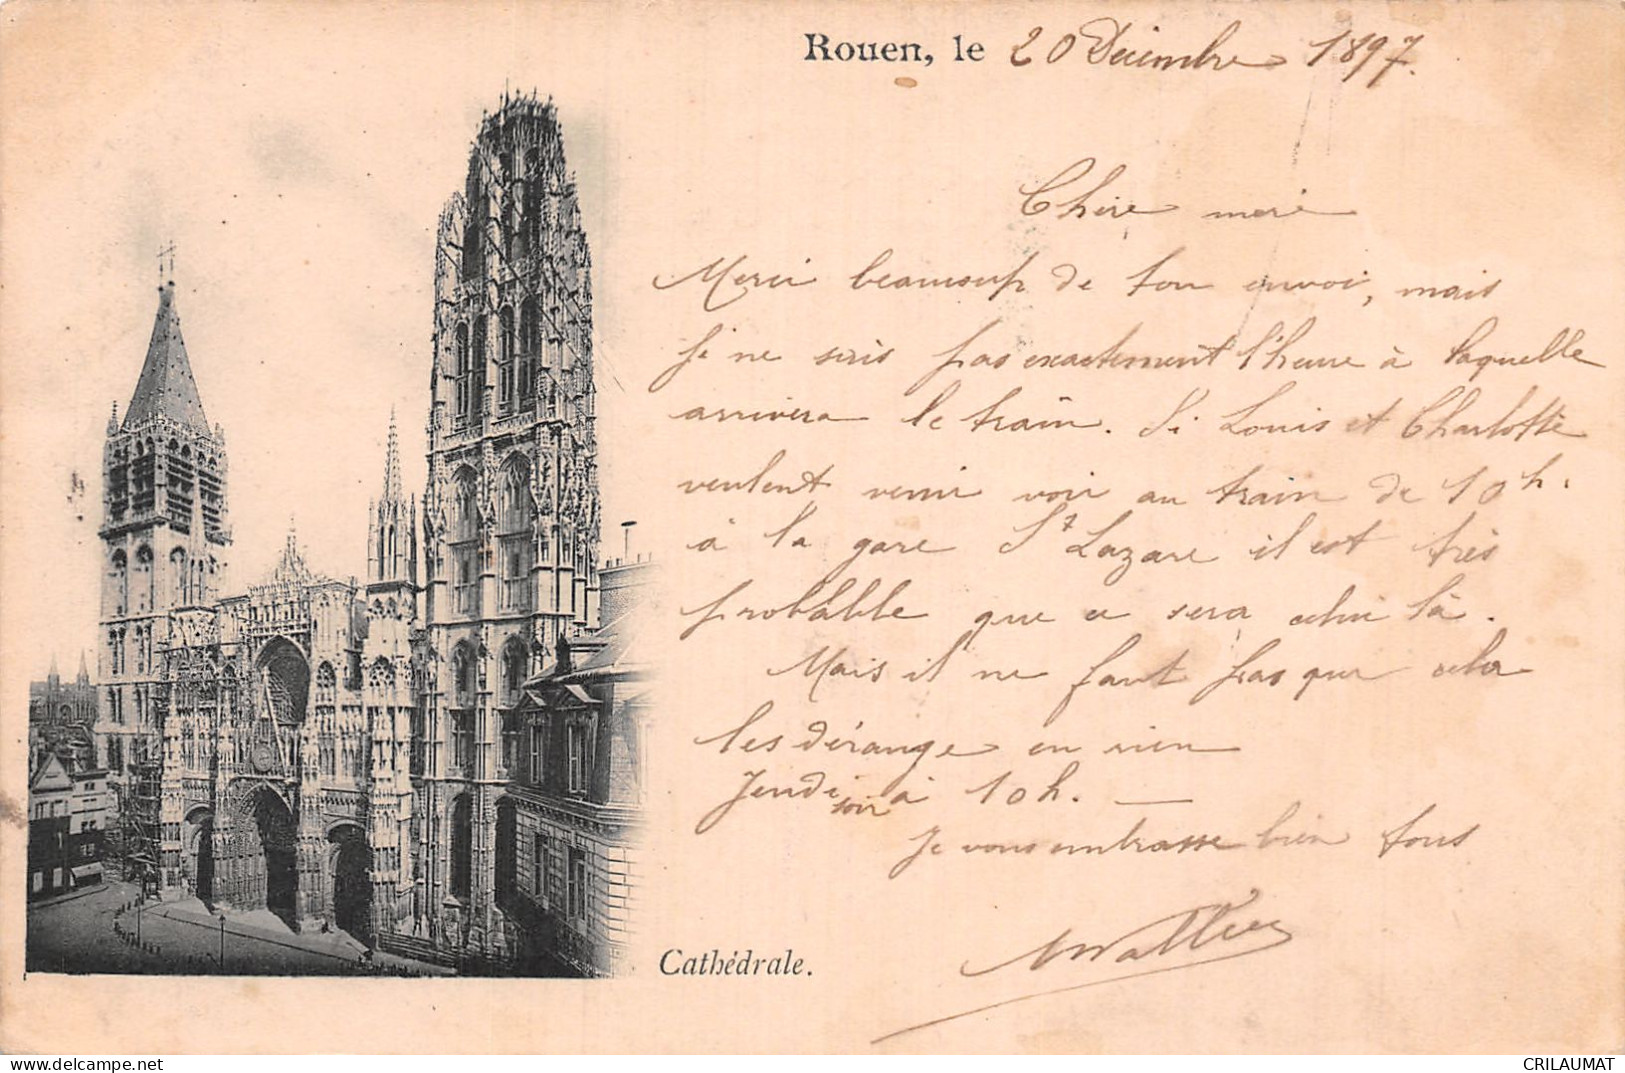 Rouen, le 20 Décembre 1897.
Chère mère
Merci beaucoup de ton envoi, mais
je ne sais pas exactement l'heure à laquelle
arrivera le train. Si Louis et Charlotte
veulent venir voir au train de 10 h.
à la gare St Lazare il est très
probable que ce sera celui là.
Mais il ne faut pas que cela
les dérange en rien
Jeudi soir à 10h. —
Je vous embrasse bien tous
Cathédrale.
CRILAUMAT